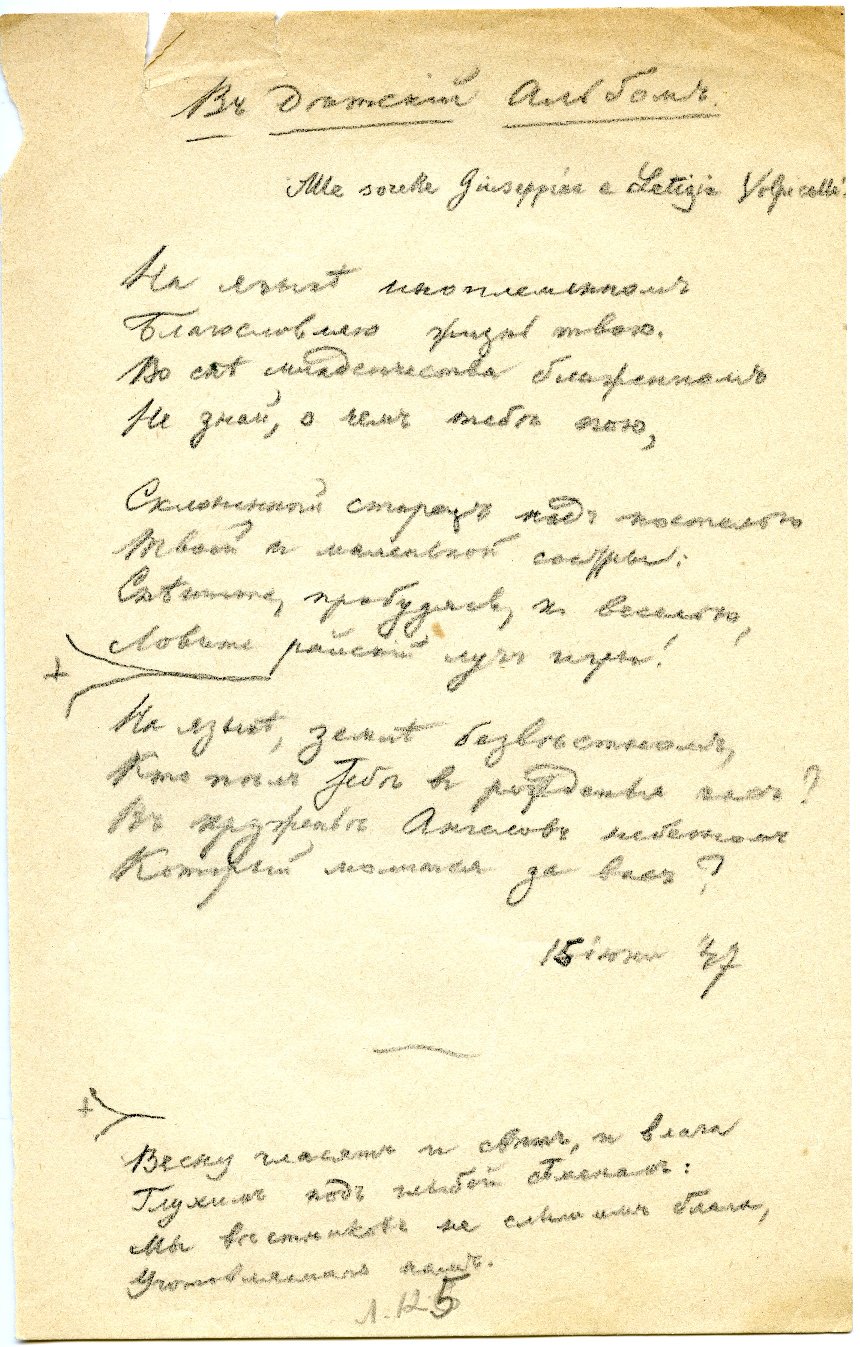 Въ Дѣтскій Альбомъ.
Alle sorelle Giuseppina e Letizia Volpicelli.
На языкѣ иноплеменномъ
Благословляю жизнь твою.
Во снѣ младенчества блаженномъ
Не знай, о чемъ тебѣ пою,
Склоненный старецъ надъ постелью
Твоей и маленькой сестры:
Спѣшите, пробудясь, къ веселью,
Ловите райскій лучъ игры!
+
На языкѣ, землѣ безвѣстномъ,
Кто пѣлъ Тебѣ въ рожденья часъ?
Въ кружевѣ Ангеловъ небесномъ
Который молится за васъ?
15 іюня '47
+
Весну гласятъ и свѣтъ, и влага
Глухимъ подъ глыбой сѣменамъ:
Мы вѣстниковъ не слышимъ блага,
Уготовляемаго намъ.
Л. 125